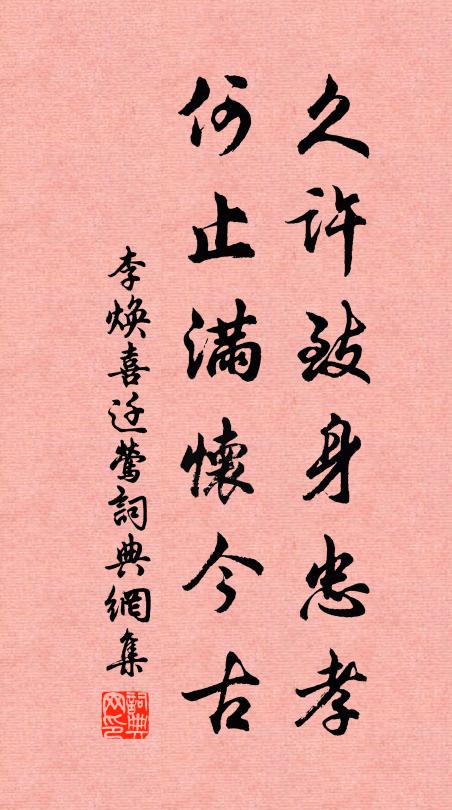 久许致身忠孝
何止满怀今古
李焕喜迁莺词典网集
词典
网印